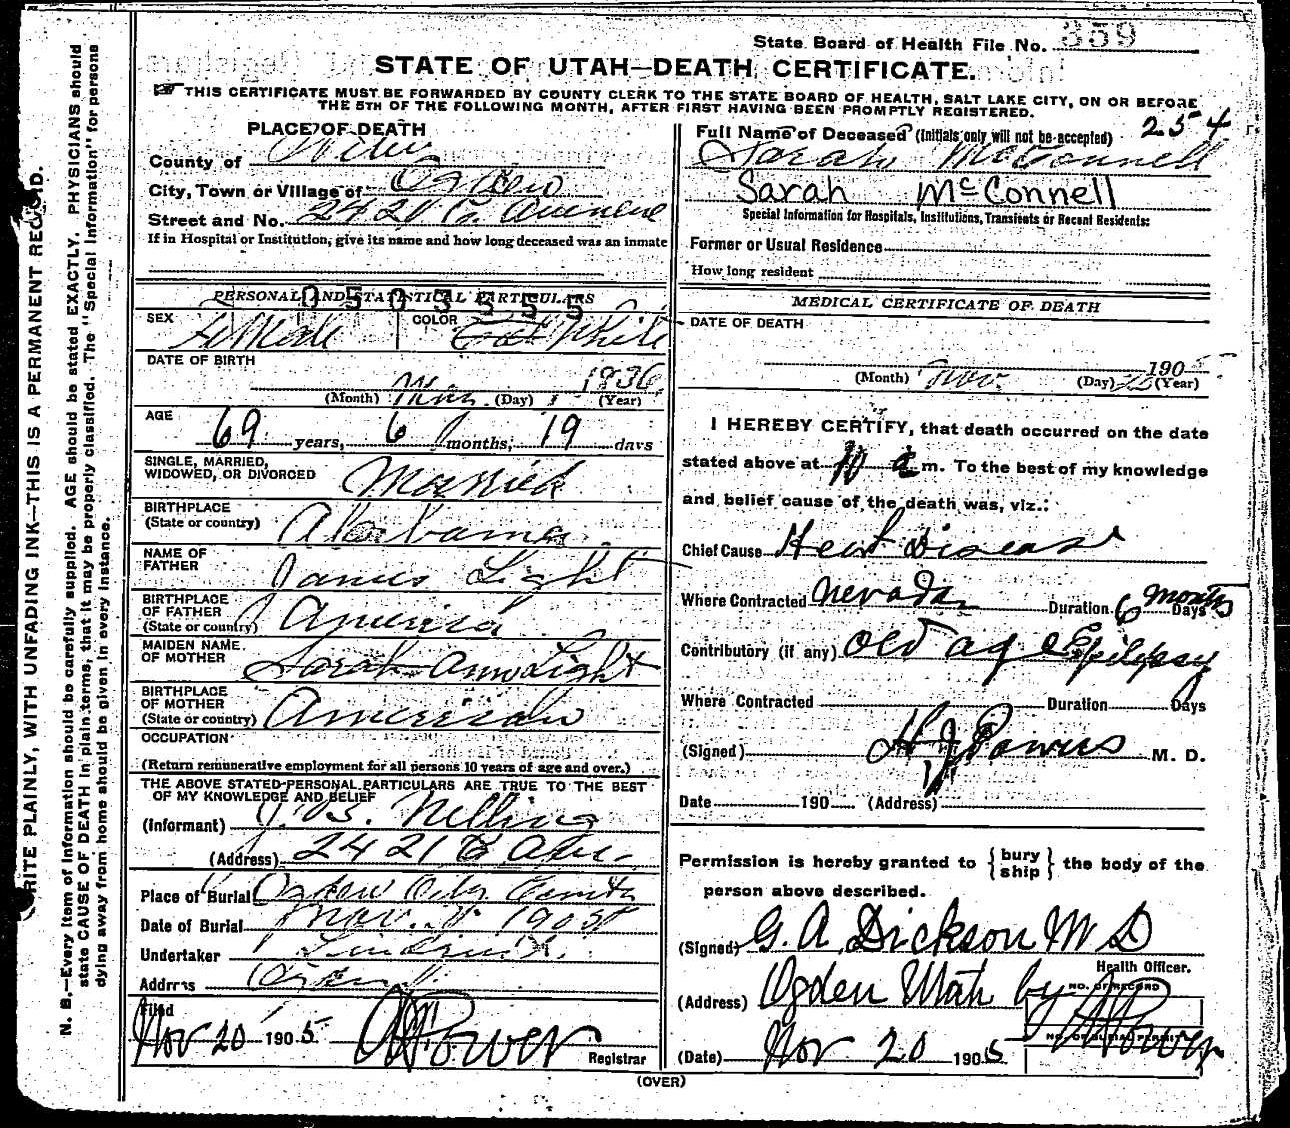 State Board of Health File No. 359
STATE OF UTAH—DEATH CERTIFICATE.
THIS CERTIFICATE MUST BE FORWARDED BY COUNTY CLERK TO THE STATE BOARD OF HEALTH, SALT LAKE CITY, ON OR BEFORE
THE 5TH OF THE FOLLOWING MONTH, AFTER FIRST HAVING BEEN PROMPTLY REGISTERED.
254
PLACE OF DEATH
County of Weber
City, Town or Village of Ogden
Street and No. 2421 Co. Avenue
If in Hospital or Institution, give its name and how long deceased was an inmate
PERSONAL AND STATISTICAL PARTICULARS
0503555
SEX Female COLOR White
DATE OF BIRTH
1836
(Month) (Day) 1 (Year)
AGE
69 years, 6 months, 19 days
SINGLE, MARRIED,
WIDOWED, OR DIVORCED Married
BIRTHPLACE
(State or country) Alabama
NAME OF
FATHER James Light
BIRTHPLACE
OF FATHER
(State or country) America
MAIDEN NAME
OF MOTHER Sarah Ann Light
BIRTHPLACE
OF MOTHER
(State or country) American
OCCUPATION
(Return remunerative employment for all persons 10 years of age and over.)
THE ABOVE STATED PERSONAL PARTICULARS ARE TRUE TO THE BEST
OF MY KNOWLEDGE AND BELIEF
(Informant)
(Address) 2421 Ave
Place of Burial Ogden City
Date of Burial 1905
Undertaker
Address Ogden
Filed
Nov 20 1905
Registrar
Full Name of Deceased (Initials only will not be accepted)
Sarah McConnell
Sarah McConnell
Special Information for Hospitals, Institutions, Transients or Recent Residents:
Former or Usual Residence
How long resident
MEDICAL CERTIFICATE OF DEATH
DATE OF DEATH
1905
(Month) Nov. (Day) (Year)
I HEREBY CERTIFY, that death occurred on the date
stated above at 10 a m. To the best of my knowledge
and belief cause of the death was, viz.:
Chief Cause Heart Disease
Where Contracted Nevada Duration 6 months Days
Contributory (if any) old age Epilepsy
Where Contracted Duration Days
(Signed) H J Powers M. D.
Date 190 (Address)
Permission is hereby granted to { bury ship } the body of the
person above described.
(Signed) G. A. Dickson M D
Health Officer.
(Address) Ogden Utah by
NO. OF RECORD
NO. OF BURIAL PERMIT
(Date) Nov 20 1905
(OVER)
WRITE PLAINLY, WITH UNFADING INK—THIS IS A PERMANENT RECORD.
N. B.—Every item of information should be carefully supplied. AGE should be stated EXACTLY. PHYSICIANS should
state CAUSE OF DEATH in plain terms, that it may be properly classified. The "Special Information" for persons
dying away from home should be given in every instance.